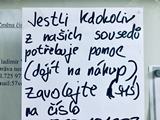 Jestli kdokoliv
z našich sousedů
potřebuje pomoc
(dojít na nákup)
zavolejte
na číslo